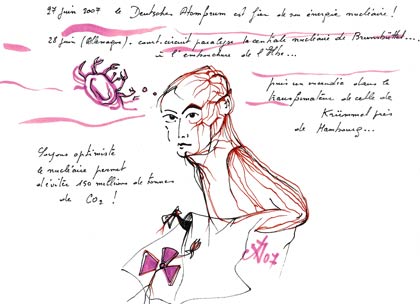 27 juin 2007 le Deutsche Atomforum est fier de son énergie nucléaire !
28 juin (Allemagne). court-circuit paralyse la centrale nucléaire de Brunsbüttel...
à l'embouchure de l'Elbe...
puis un incendie dans le
transformateur de celle de
Krümmel près
de Hambourg...
Soyons optimiste
le nucléaire permet
d'éviter 150 millions de tonnes
de CO2 !
07